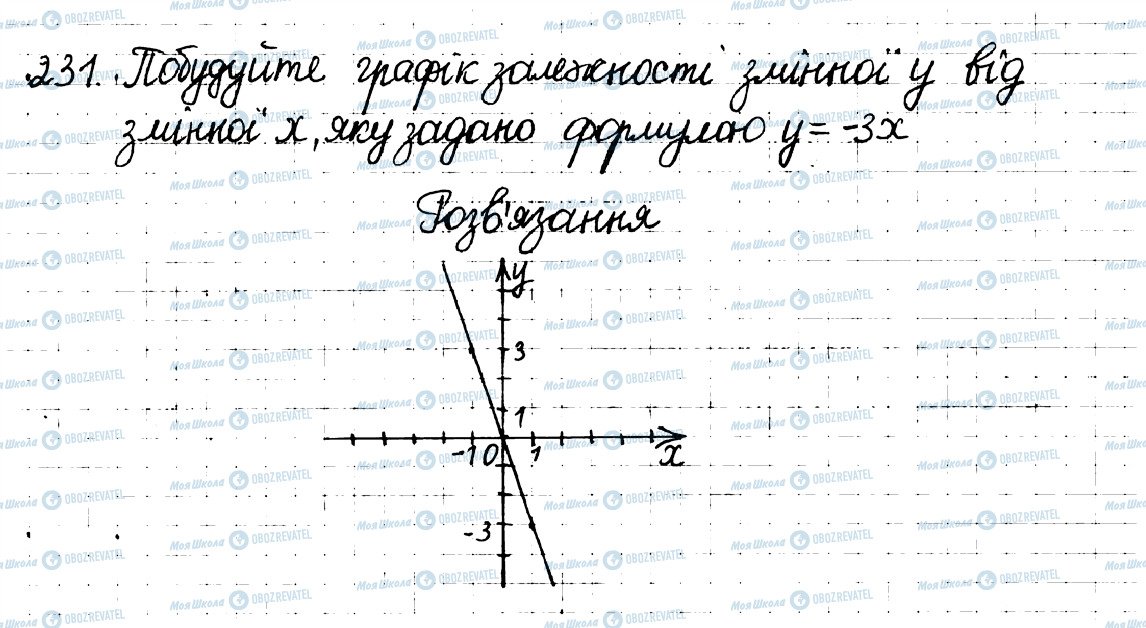 231. Побудуйте графік залежності змінної y від
змінної x, яку задано формулою y = -3x
Розв'язання
y
3
1
-1 0 1 x
-3
Моя Школа OBOZREVATEL